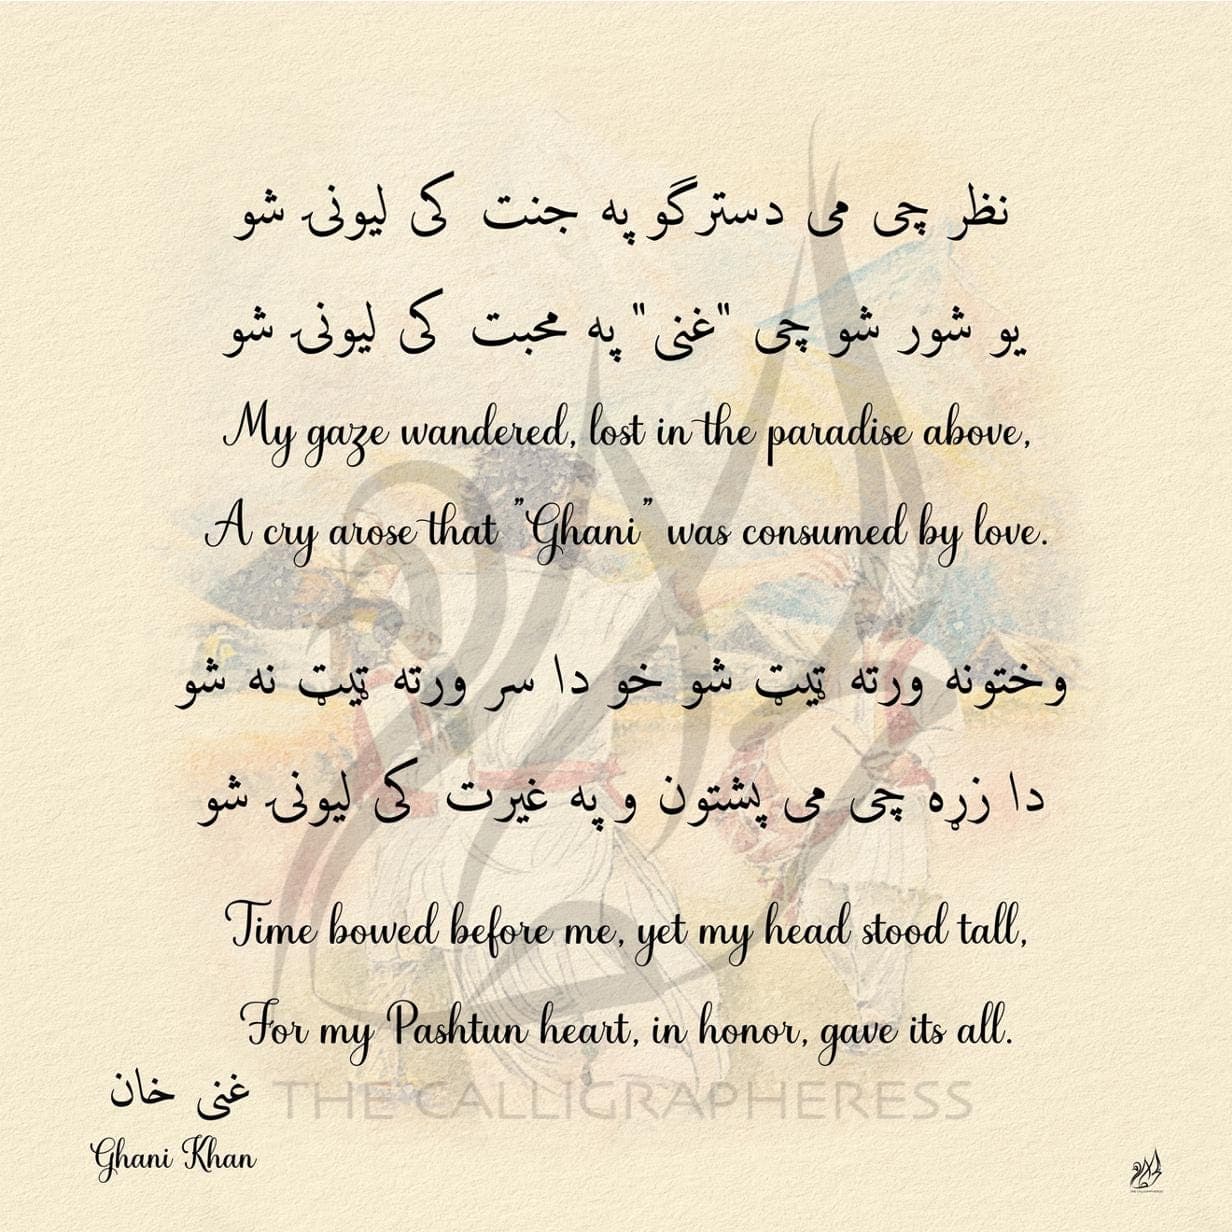 نظر چی می دسترگو په جنت کی لیونۍ شو
یو شور شو چی "غنی" په محبت کی لیونۍ شو
My gaze wandered, lost in the paradise above,
A cry arose that "Ghani" was consumed by love.
وختونه ورته ټیټ شو خو دا سر ورته ټیټ نه شو
دا زړه چی می پښتون و په غیرت کی لیونۍ شو
Time bowed before me, yet my head stood tall,
For my Pashtun heart, in honor, gave its all.
غنی خان
Ghani Khan
THE CALLIGRAPHERESS
THE CALLIGRAPHERESS